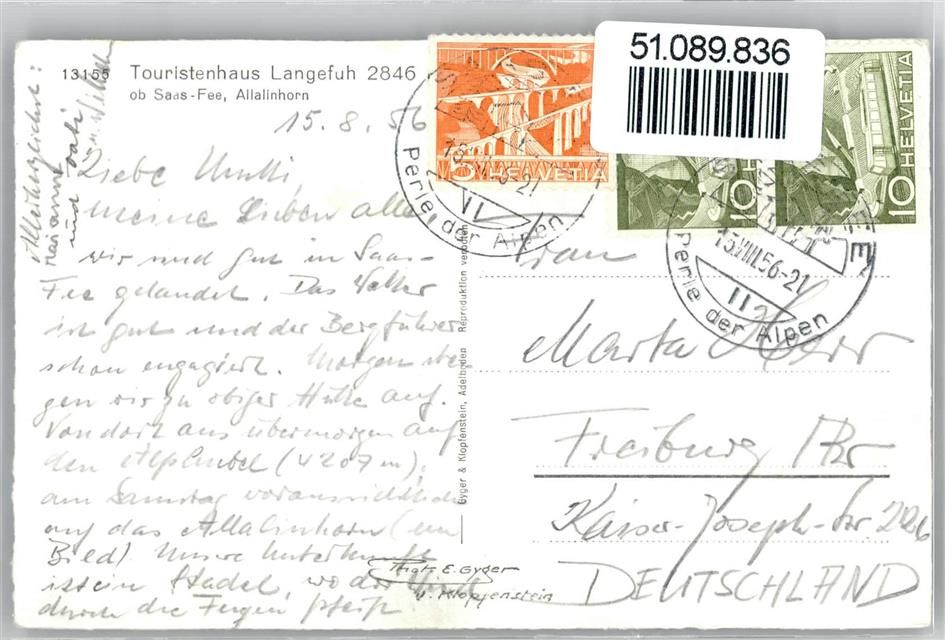 13155 Touristenhaus Langefuh 2846
ob Saas-Fee, Allalinhorn
15.8.56
Liebe Mutti,
meine Lieben alle
wir sind gut in Saas-
Fee gelandet. Das Wetter
ist gut und der Bergführer
schon engagiert. Morgen stei
gen wir zu obiger Hütte auf.
Von dort aus übermorgen auf
den Alphubel (4207 m),
am Samstag voraussichtlich
auf das Allalinhorn (im
Bild). Unsre Unterkunft
ist ein Stadel, wo der Wind
durch die Fugen pfeift
Mitunterzeichnet:
und
Gyger & Klopfenstein, Adelboden Reproduktion verboten
Photo E. Gyger
u. Klopfenstein
51.089.836
5 HELVETIA
10
10 HELVETIA
Perle der Alpen
15.VIII.56-21
Perle der Alpen
Frau
Marta Herr
Freiburg /Br
Kaiser-Joseph-Str 226
DEUTSCHLAND